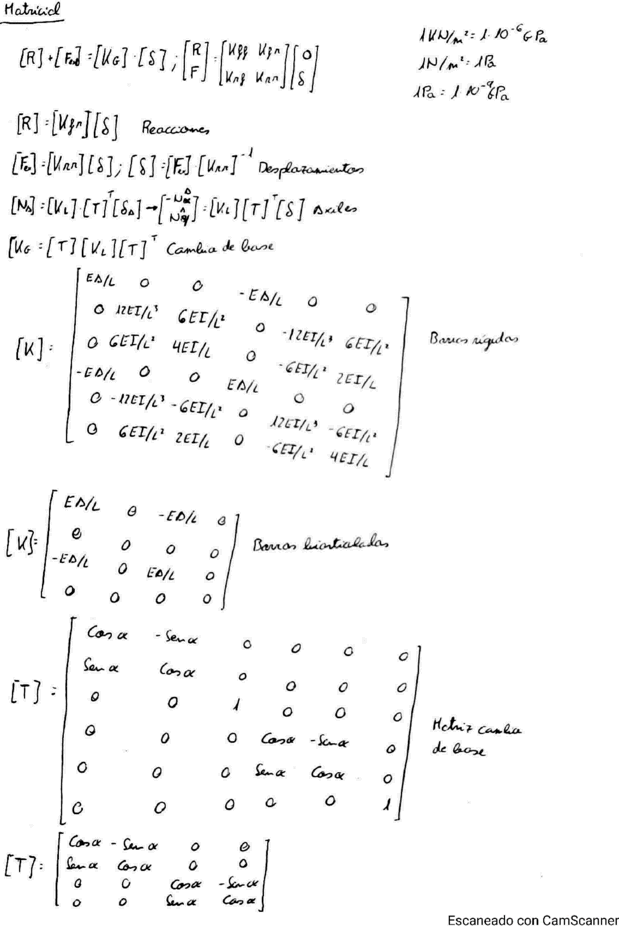 Matricial
[R]+[Fen]=[KG]·[δ] ; [R F]=[Kff Kfn Knf Knn][0 δ]
1 KN/m²=1·10⁻⁶ GPa
1N/m²=1Pa
1Pa=1·10⁻⁹ GPa
[R]=[Kfn][δ] Reacciones
[Fen]=[Knn][δ]; [δ]=[Fen]·[Knn]⁻¹ Desplazamientos
[NA]=[KL]·[T]ᵀ[δA]→ =[KL][T]ᵀ[δ] Axiles
[KG=[T][KL][T]ᵀ Cambia de base
[K]=
EA/L 0 0 -EA/L 0 0
0 12EI/L³ 6EI/L² 0 -12EI/L³ 6EI/L²
0 6EI/L² 4EI/L 0 -6EI/L² 2EI/L
-EA/L 0 0 EA/L 0 0
0 -12EI/L³ -6EI/L² 0 12EI/L³ -6EI/L²
0 6EI/L² 2EI/L 0 -6EI/L² 4EI/L
Barras rígidas
[K]=
EA/L 0 -EA/L 0
0 0 0 0
-EA/L 0 EA/L 0
0 0 0 0
Barras biarticuladas
[T]=
Cos α -Sen α 0 0 0 0
Sen α Cos α 0 0 0 0
0 0 1 0 0 0
0 0 0 Cos α -Sen α 0
0 0 0 Sen α Cos α 0
0 0 0 0 0 1
Matriz cambia
de base
[T]=
Cos α -Sen α 0 0
Sen α Cos α 0 0
0 0 Cos α -Sen α
0 0 Sen α Cos α
Escaneado con CamScanner